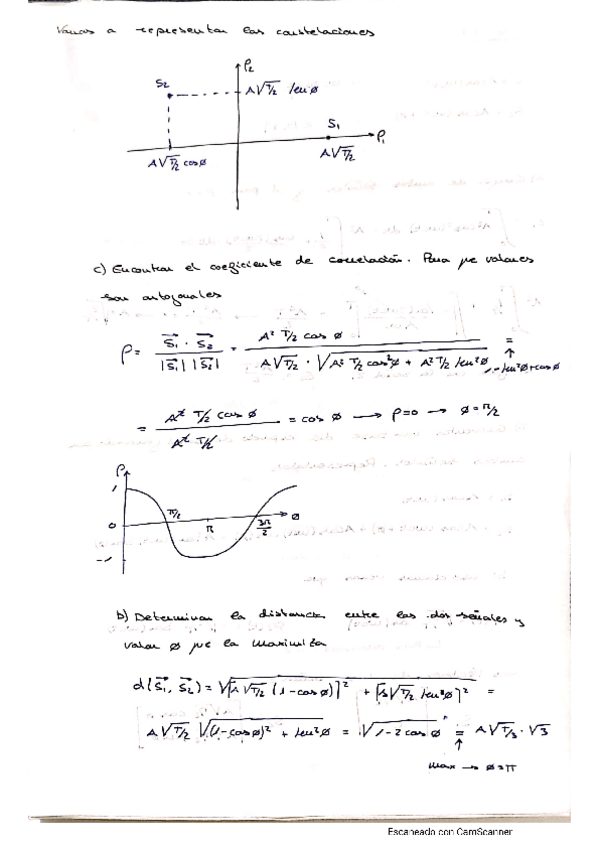 Vamos a representar las constelaciones
φ₂
S₂ A√T/2 sen ø
S₁ φ₁
A√T/2 cos ø A√T/2
c) Encontrar el coeficiente de correlación. Para que valores
son ortogonales
ρ = (S₁ · S₂) / (|S₁| |S₂|) = (A² T/2 cos ø) / (A√T/2 · √(A² T/2 cos²ø + A² T/2 sen²ø)) =
= (A² T/2 cos ø) / (A² T/2) = cos ø → ρ=0 → ø = π/2
ρ
1
0 π/2 π 3π/2 ø
-1
b) Determinar la distancia entre las dos señales y
valor ø que la maximiza
d(S₁, S₂) = √([A√T/2 (1-cos ø)]² + [A√T/2 sen ø]²) =
A√T/2 √((1-cos ø)² + sen²ø) = √(1-2 cos ø) = A√T/3 · √3
max → ø=π
Escaneado con CamScanner